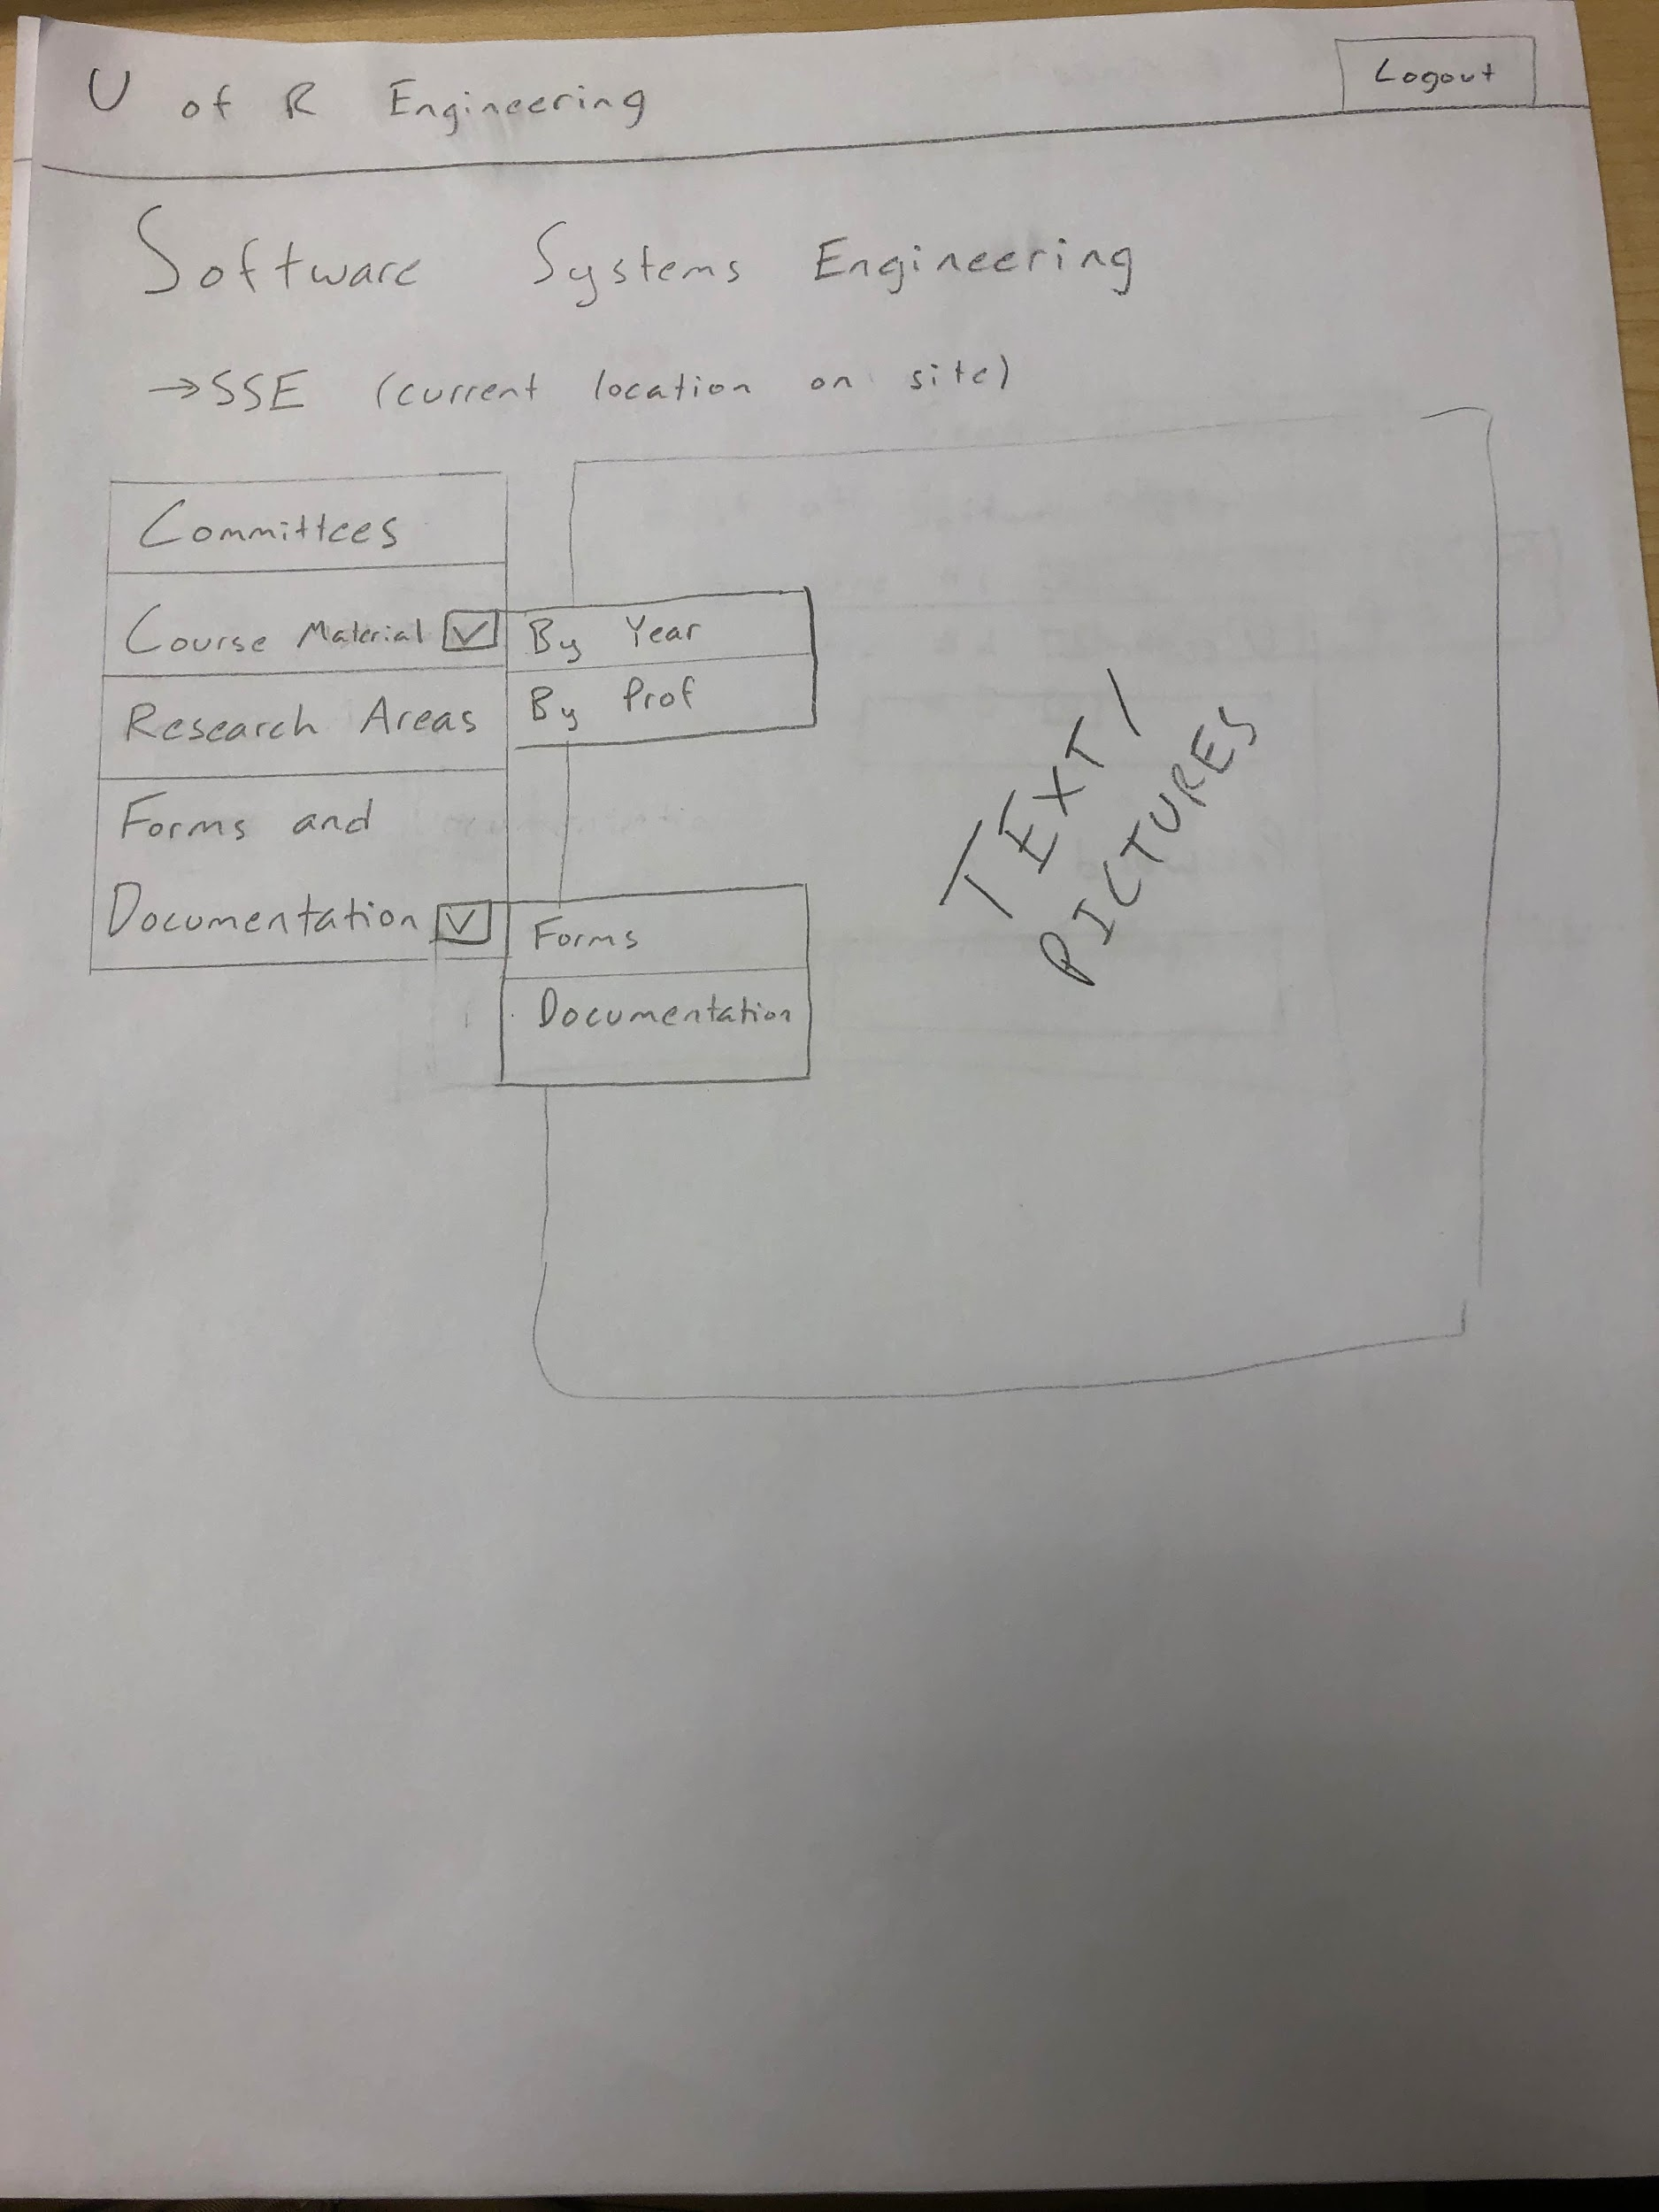 U of R Engineering
Logout
Software Systems Engineering
→SSE (current location on site)
Committees
Course Material
By Year
By Prof
Research Areas
Forms and
Documentation
Forms
Documentation
TEXT/
PICTURES